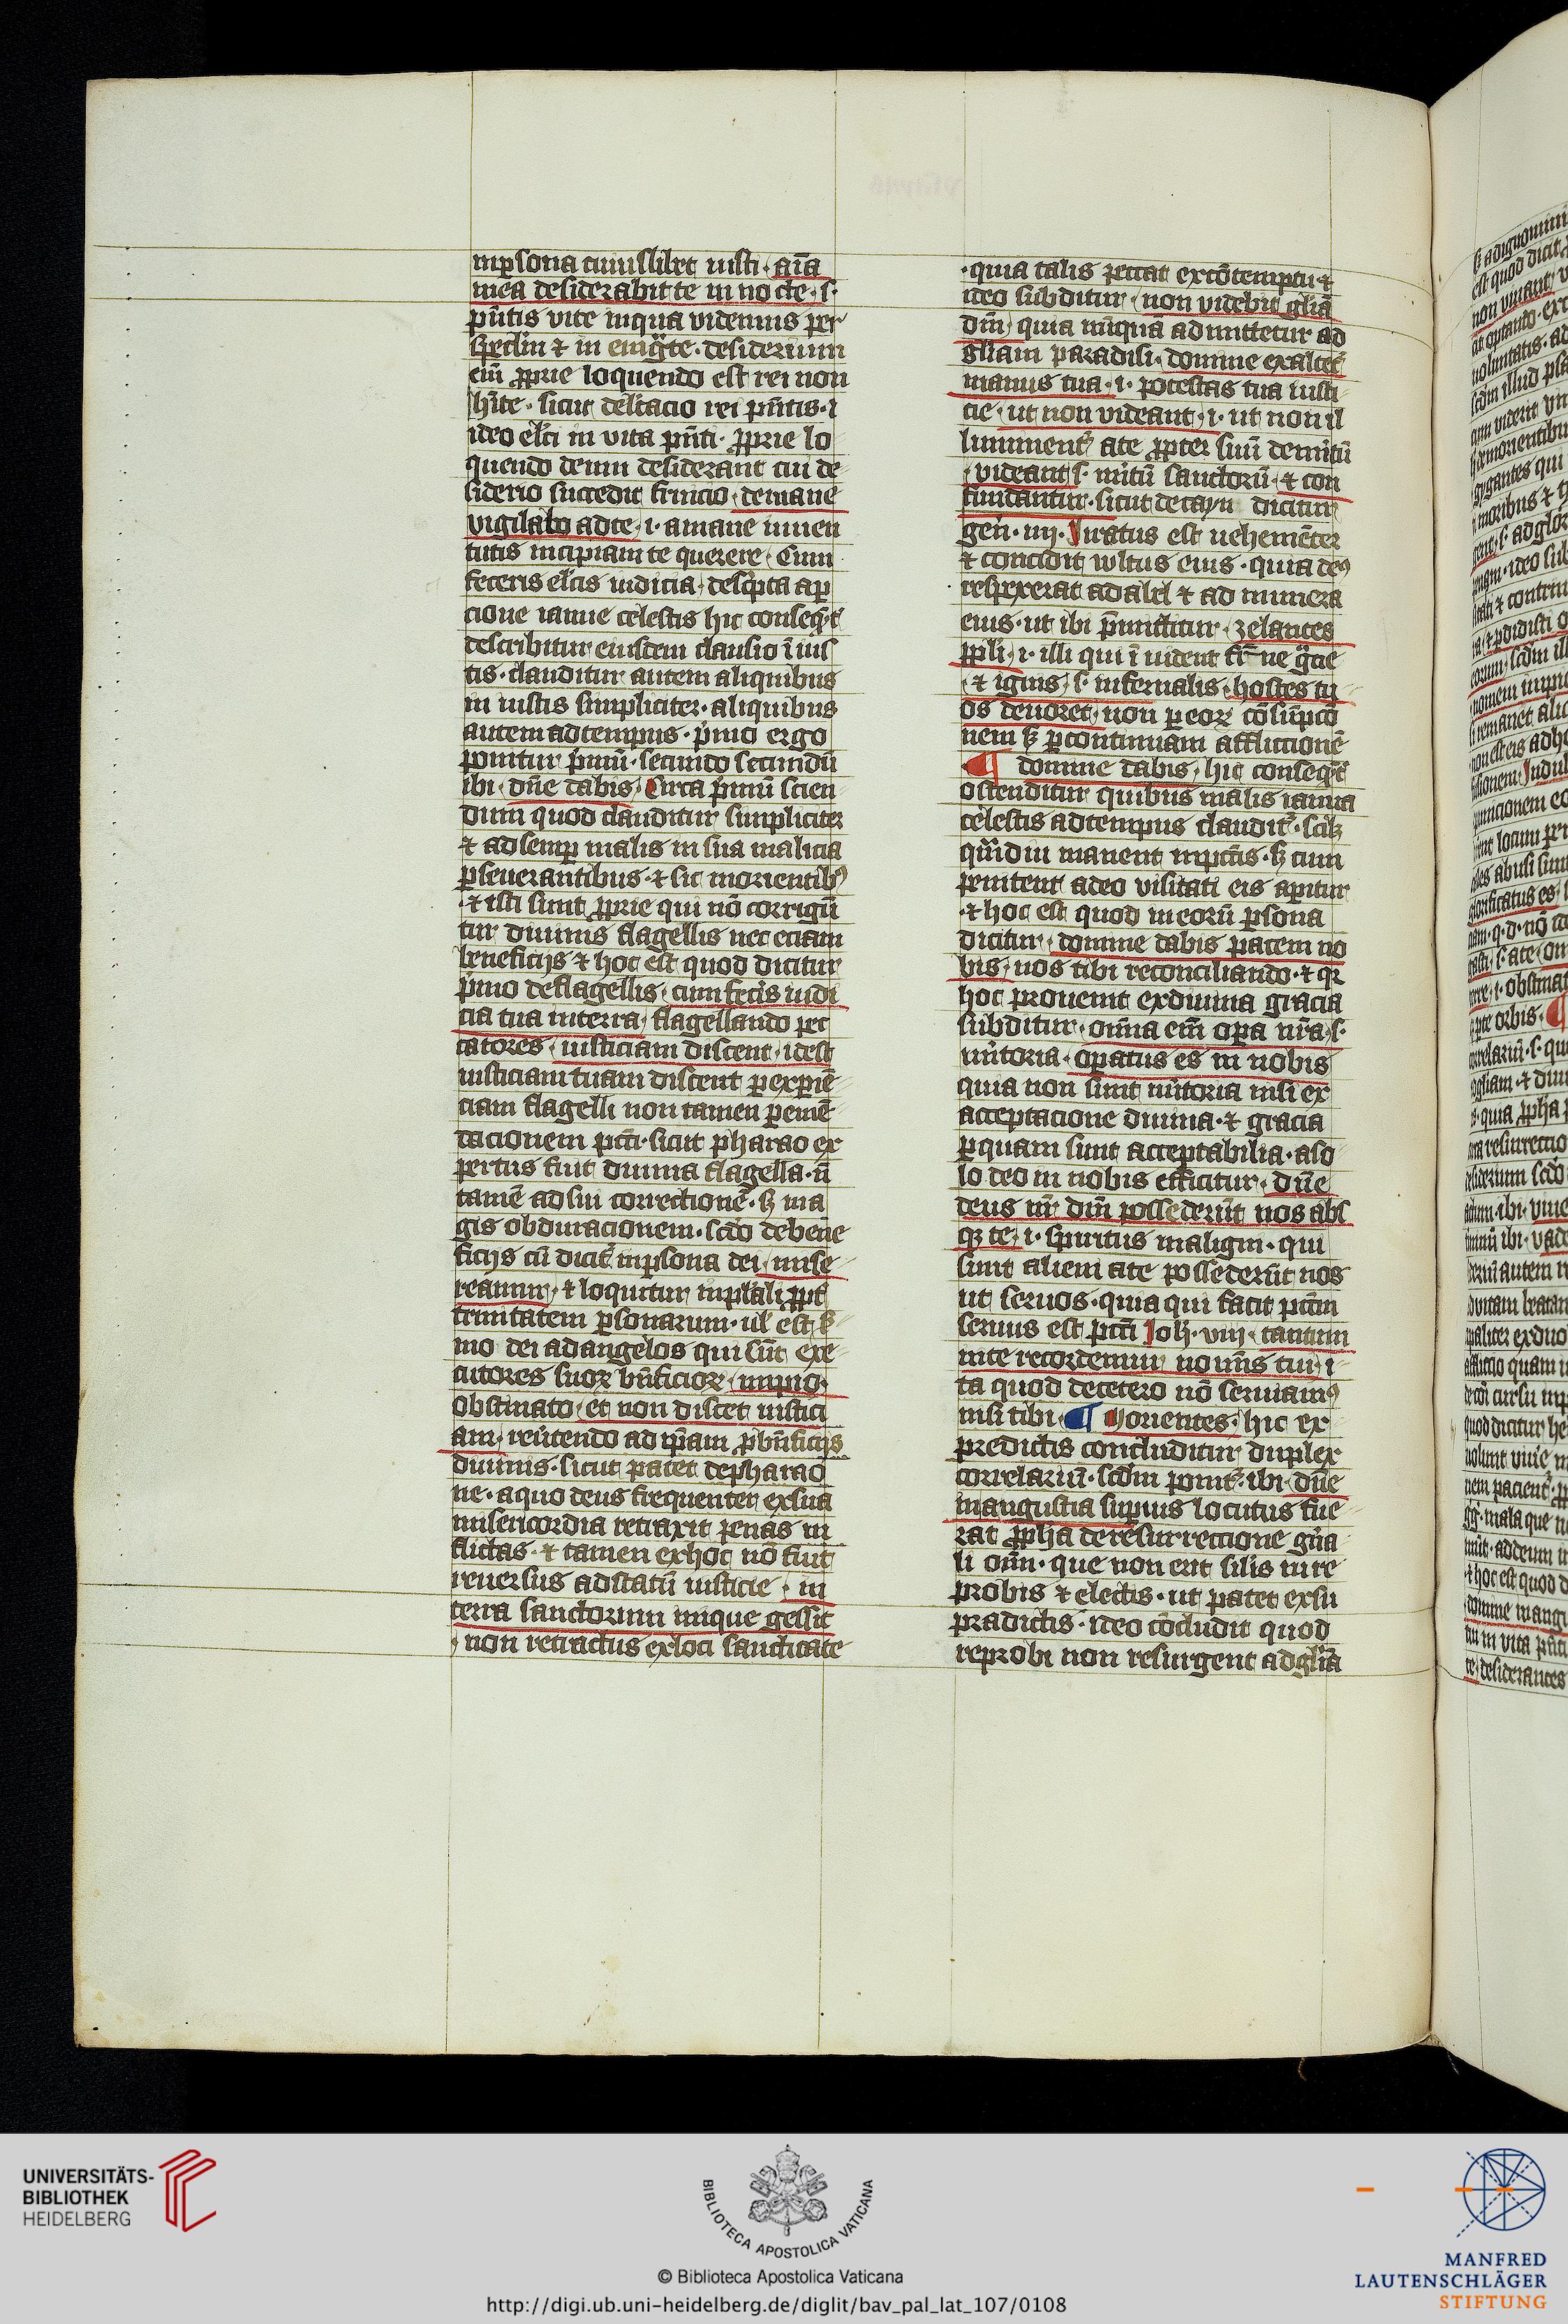 inp̱sona cuiuslibet iusti · aīa
mea desiderabit te in nocte · s·
pn̄tis vite inqua videmus per
speclm̄ ⁊ in enigᵃte · desiderium
eni̅ ꝓprie loquendo est rei non
hīte · sicut delc̄acio rei pn̄tis · ⁊
ideo el̄cti in vita pn̄ti · ꝓprie lo
quendo deum desiderant cui de
siderio succedit fruicio · demane
vigilabo adte · i · amane iuuen
tutis incipiam te querere Cum
feceris el̄cis iudicia · descͥpta aꝑ
cione ianue celestis hic conseq̄⁊t̄
describitur eiusdem clausio ī ius
tis · clauditur autem aliquibus
in iustis simpliciter · aliquibus
autem adtempus · pͥmo ergo
ponitur pͥmū · secundo secundū
ibi · dn̄e dabis Circa pͥmū scien
dum quod clauditur simpliciter
⁊ adsemꝑ malis in sua malicia
ꝑseuerantibus · ⁊ sic morientibꝰ
· ⁊ isti sunt ꝓprie qui nō corrigū
tur diuinis flagellis nec eciam
beneficijs ⁊ hoc est quod dicitur
pͥmo deflagellis · cum fecͥs iudi
cia tua interra · flagellando pec
catores · iusticiam discent · idest
iusticiam tuam discent ꝑexꝑiē
ciam flagelli non tamen ꝑemē
dacionem pctī · sicut pharao ex
pertus fuit diuina flagella · n̄
tamē adsui correctionē · sꝫ ma
gis obduracionem · scd̄o debene
ficijs cū dicit᷑ inꝑsona dei · mise
reamur · ⁊ loquitur inplͣali ꝓpt̄
trinitatem ꝑsonarum · ul̄ est s̄
mo dei adangelos qui sūt exe
cutores suoꝝ bn̄ficioꝝ · impio ·
obstinato · et non discet iustici
am · reūtendo ad ip̄am ꝑbn̄ficijs
diuinis · sicut patet depharao
ne · aquo deus frequenter exsua
misericordia retraxit penas in
flictas · ⁊ tamen exhoc nō fuit
reuersus adstatū iusticie · in
terra sanctorum inique gessit
· non retractus exloci sanctitate
· quia talis peccat excōtemptu ⁊
ideo subditur · non videbit gliā
dm̄ · quia nūquā admittetur ad
gl̄iam paradisi · domine exaltet᷑
manus tua · i · potestas tua iusti
cie · ut non videant · i · ut non il
luminent᷑ ate ꝓpter suū demͥtū
· videant s · mͥtū sanctorū · ⁊ con
fundantur · sicut decayn dicitur
gen̄ · iiij · Iratus est uehemēter
⁊ concidit wltus eius · quia deꝰ
respexerat ad abel ⁊ ad munera
eius · ut ibi p̄mittitur · zelantes
ppl̄i · i · illi qui ī uident fr̄ne gͣcie
· ⁊ ignis · s · infernalis · hostes tu
os deuoret · non ꝑeoꝝ cōsūpcō
nem sꝫ ꝑcontinuam afflictionē
¶ domine dabis · hic conseq̄⁊t̄
ostenditur quibus malis ianua
celestis adtempus claudit᷑ · scilꝫ
qͣmdiu manent inpctīs · sꝫ cum
penitent adeo visitati eis aꝑitur
· ⁊ hoc est quod ineorū ꝑsona
dicitur · domine dabis pacem no
bis · nos tibi reconciliando · ⁊ qꝛ
hoc prouenit exdiuina gracia
subditur · omīa em̄ oꝑa nr̄a · s ·
mͥtoria · oꝑatus es in nobis
quia non sunt mͥtoria nisi ex
acceptacione diuina · ⁊ gracia
ꝑquam sunt acceptabilia · aso
lo deo in nobis efficitur · dn̄e
deus nr̄ dm̄ possederūt nos abs
qꝫ te · i · spiritus maligni · qui
sunt alieni ate possederūt nos
ut seruos · quia qui facit pctm̄
seruus est pctī Ioh̄ · viij · tantum
inte recordemur nomīs tui · i
ta quod decetero nō seruiamꝰ
nisi tibi · ¶ Morientes · hic ex
predictis concluditur duplex
correlariū · scd̄m ponit᷑ · ibi · dn̄e
inangustia suꝑius locutus fue
rat ꝓpha deresurrectione gn̄a
li om̄i · que non erit sīlis in re
probis ⁊ electis · ut patet exsu
pradictis · ideo cōcludit quod
reprobi non resurgent adgl̄iā
UNIVERSITÄTS-
BIBLIOTHEK
HEIDELBERG
BIBLIOTECA APOSTOLICA VATICANA
© Biblioteca Apostolica Vaticana
http://digi.ub.uni-heidelberg.de/diglit/bav_pal_lat_107/0108
MANFRED
LAUTENSCHLÄGER
STIFTUNG